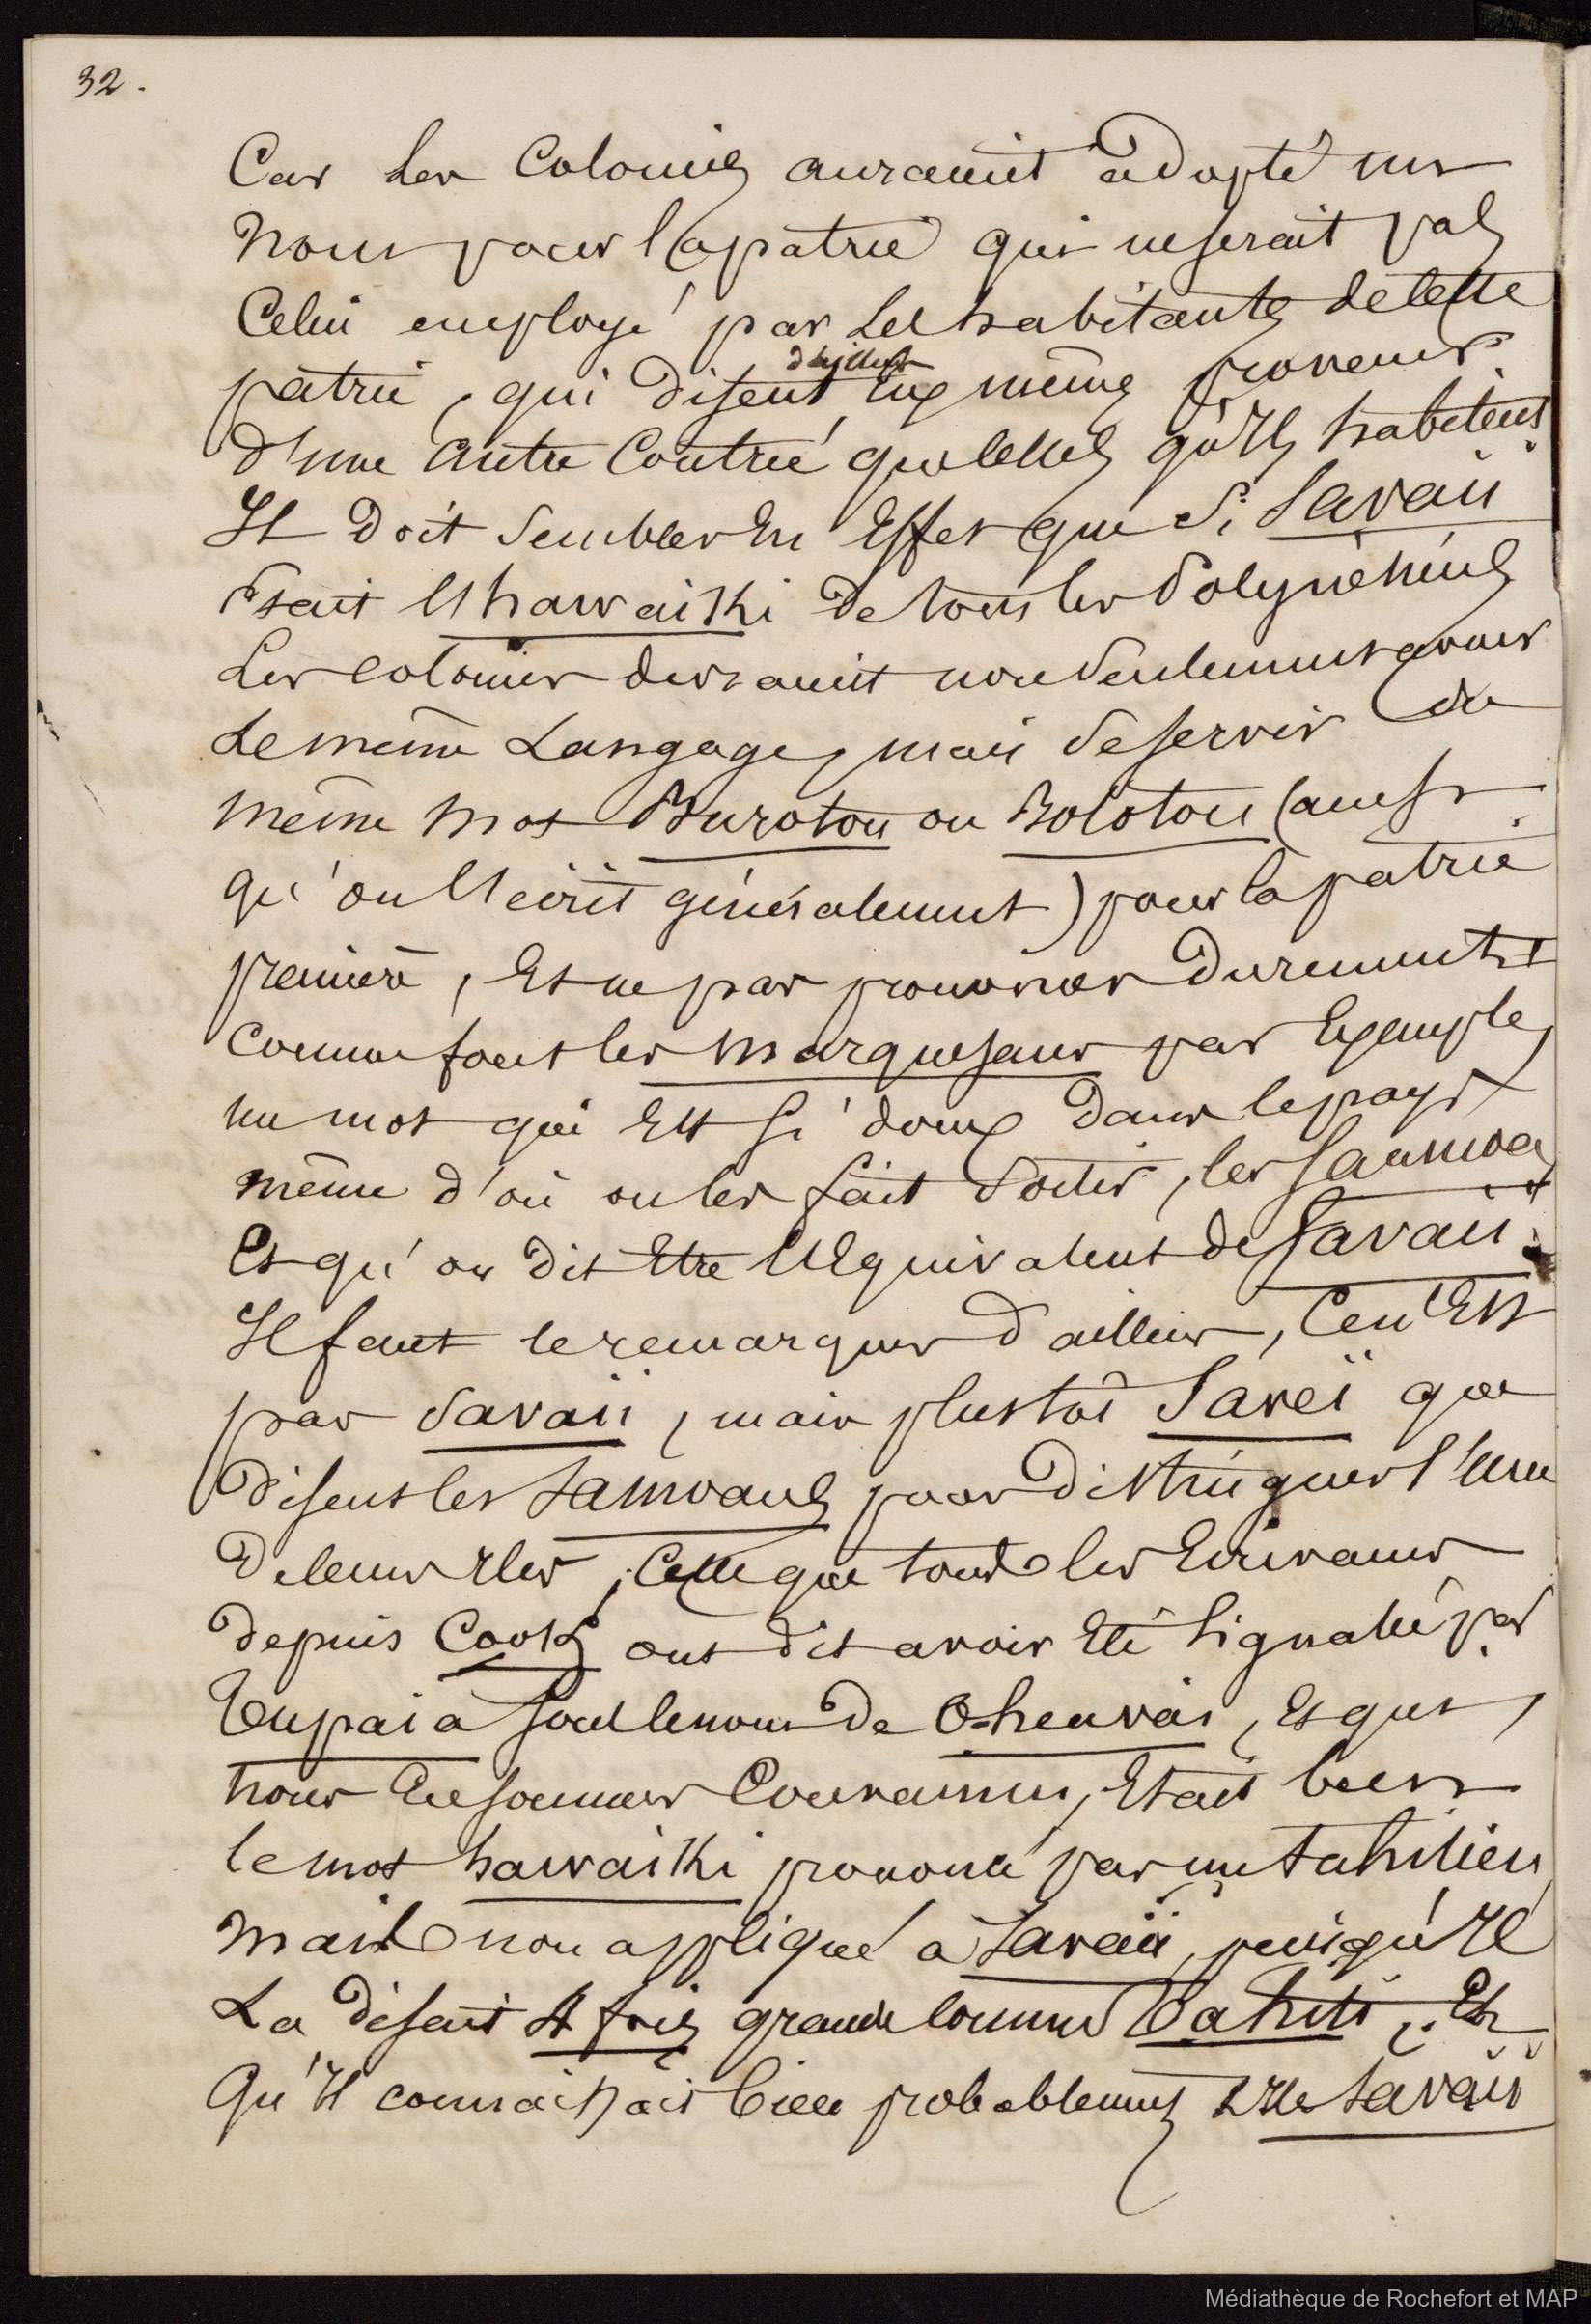 32.
Car les Colonies auraient adopté un
nom pour la patrie qui ne serait pas
Celui employé par les habitants de cette
patrie, qui disent d'ailleurs Eux mêmes provenir
d'une autre Contrée que celle qu'ils habitent.
Il doit sembler En Effet que si Savaii
Etait l'hawaiki de tous les Polynésiens
Les colonies devraient non seulement avoir
Le même Langage, mais se servir du
même mot Burotou ou Bolotou (ainsi
qu'on l'écrit généralement) pour la patrie
première, Et ne pas prononcer durement
Comme font les Marquesans par Exemple,
un mot qui Est si doux dans le pays
même d'où on les fait sortir, les Samoa,
Et qu'on dit Etre l'Equivalent de Savaii.
Il faut le remarquer d'ailleurs, Ce n'Est
pas Savaïi, mais plustôt Saveï que
disent les Samoans pour distinguer l'une
de leurs Iles, Celle que tous les Ecrivains
depuis Cook ont dit avoir Eté signalée par
Tupaia sous le nom de O-heavai, Et qui,
nous En sommes Convaincu, Etait bien
le mot hawaiki prononcé par un tahitien
mais non appliqué à Savaii, puisqu'Il
La disait 4 fois grande comme Tahiti, Et
Qu'Il connaissait bien probablement l'Ile Savaii